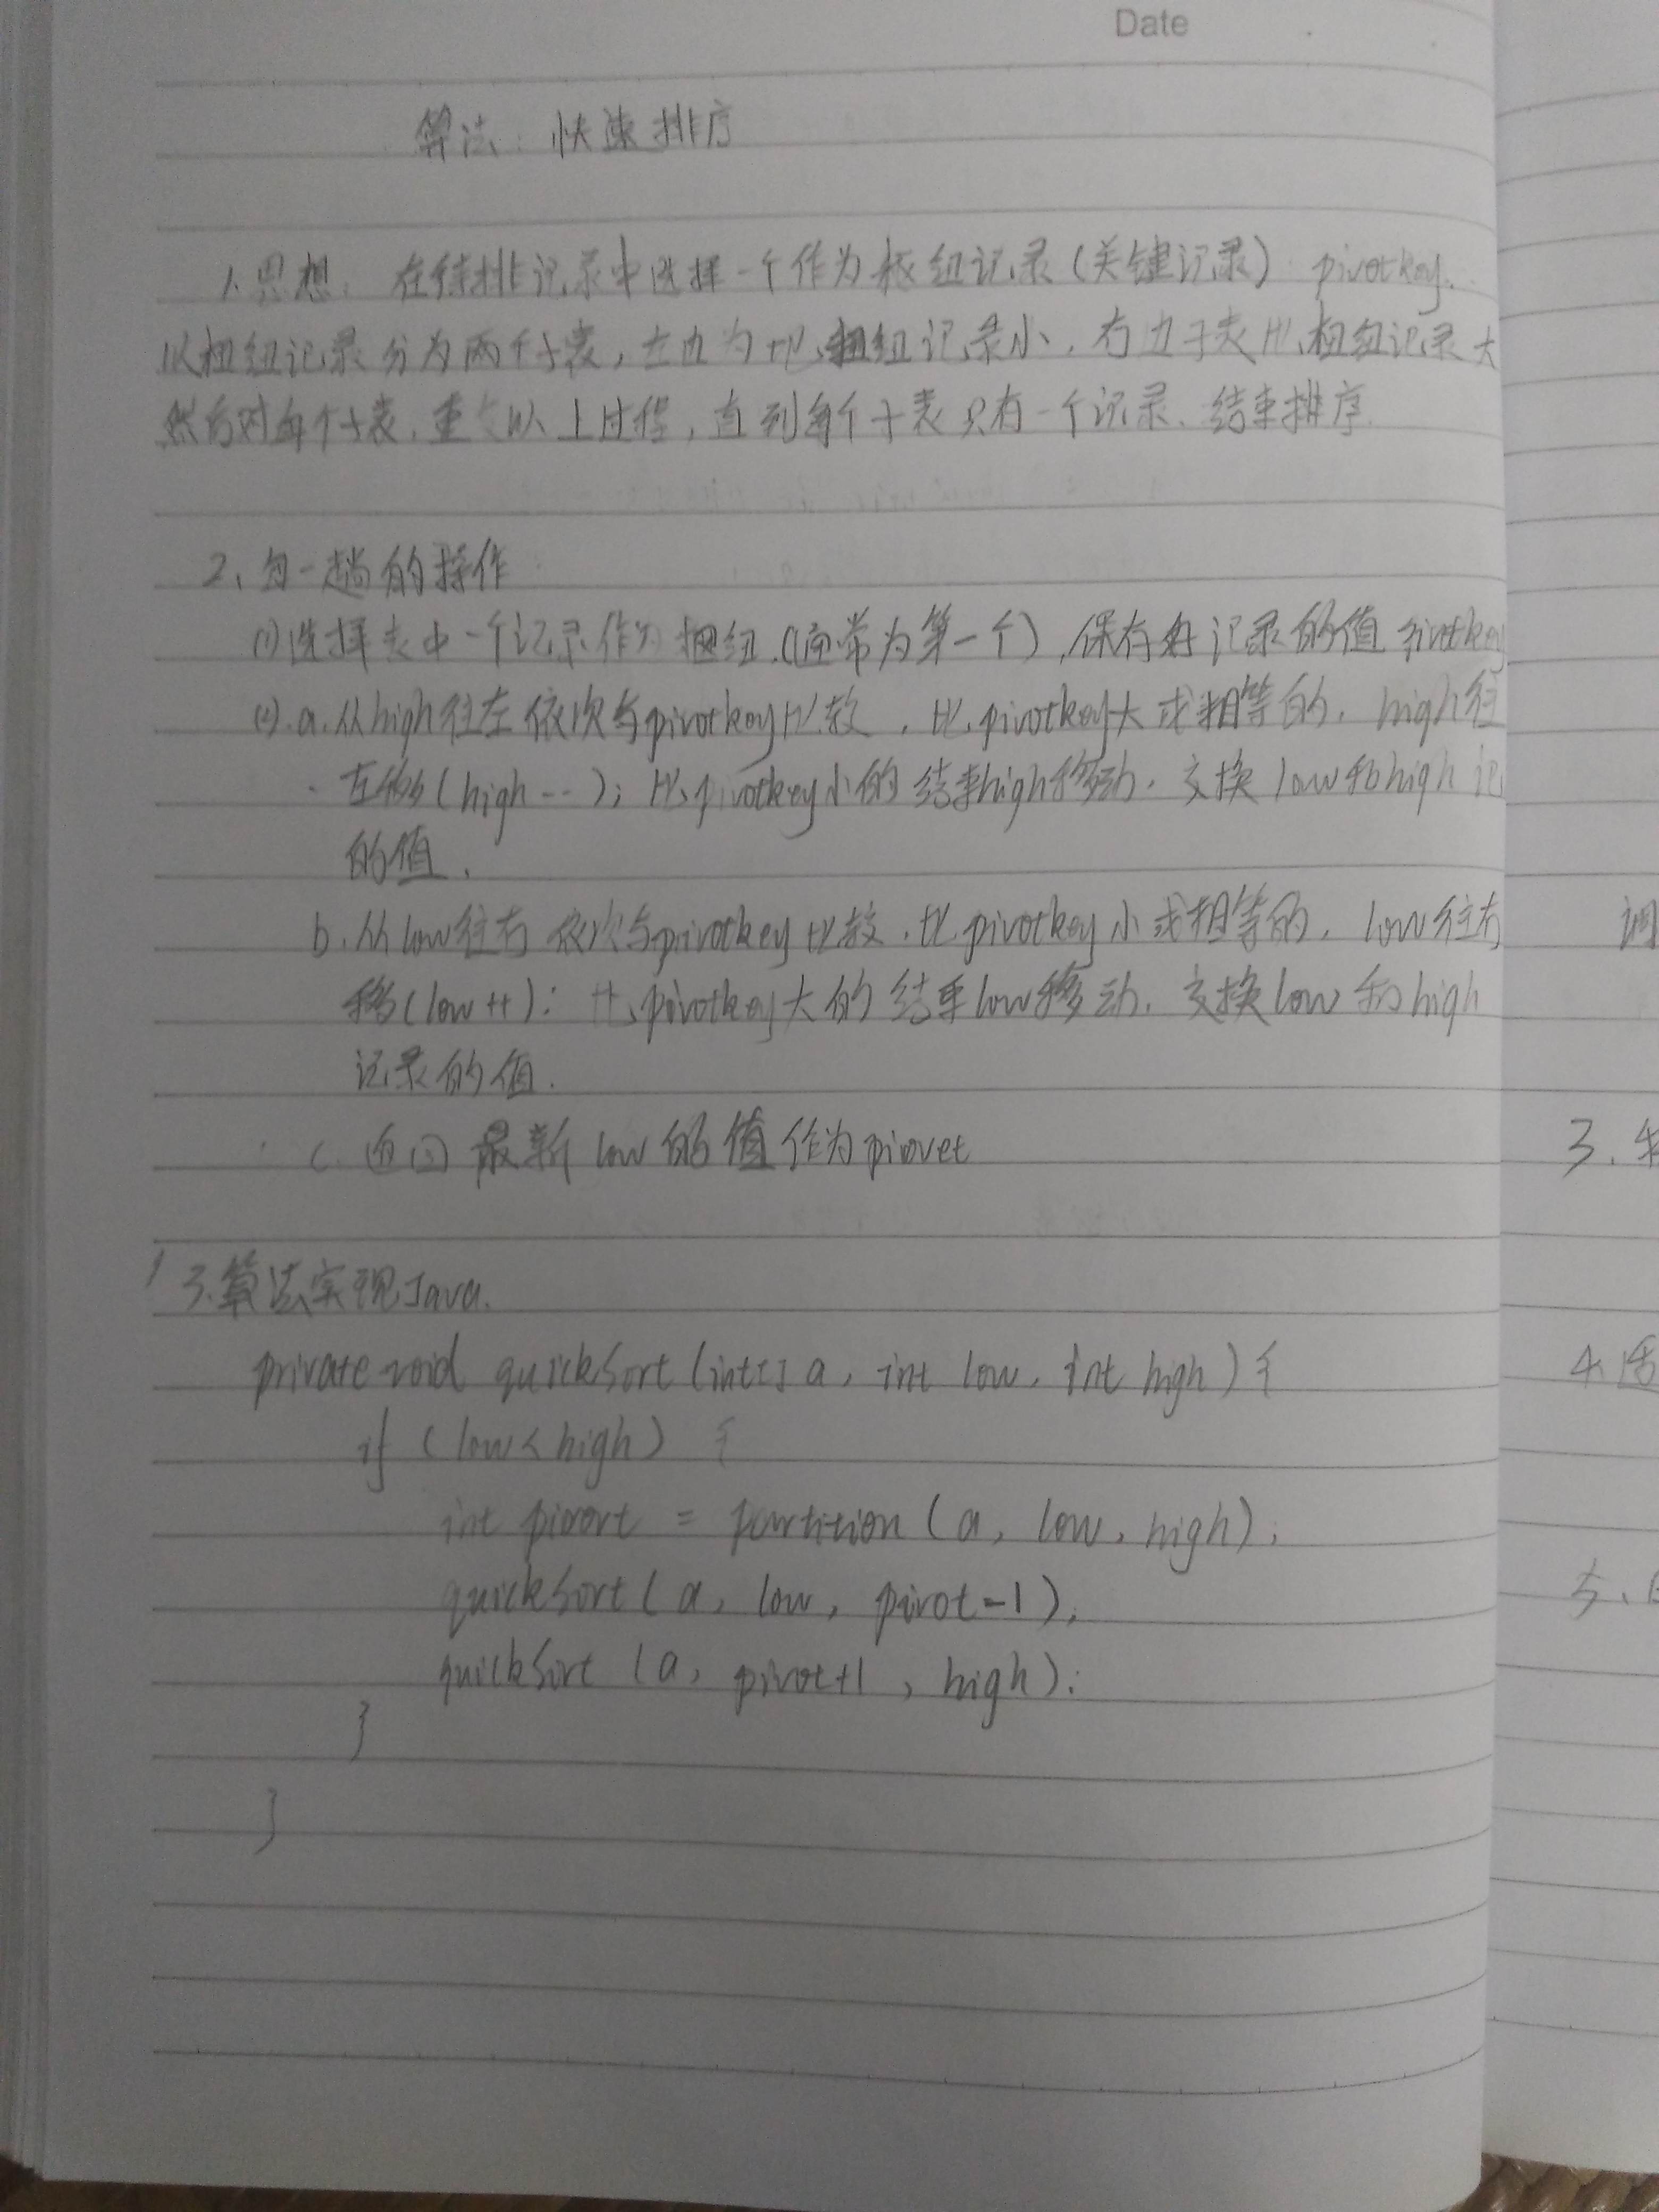 Date
算法：快速排序
1.思想：在待排记录中选择一个作为枢纽记录(关键记录) pivotkey.
以枢纽记录分为两个子表，左边为比枢纽记录小，右边子表比枢纽记录大
然后对每个子表，重复以上过程，直到每个子表只有一个记录、结束排序.
2、每一趟的操作
(1)选择表中一个记录作为枢纽.(通常为第一个),保存好记录的值 pivotkey
(2).a.从high往左依次与pivotkey比较，比pivotkey大或相等的，high往
左移(high--)；比pivotkey小的结束high移动，交换low和high记
的值.
b.从low往右依次与pivotkey比较.比pivotkey小或相等的，low往右
移(low++)：比pivotkey大的结束low移动.交换low和high
记录的值.
c.返回最新low的值作为piovet
3.算法实现Java.
private void quickSort(int[] a, int low, int high) {
if (low < high) {
int pivort = partition (a, low, high);
quickSort( a, low, pivot-1);
quickSort (a, pivot+1, high);
}
}
调
3、
4.
5、